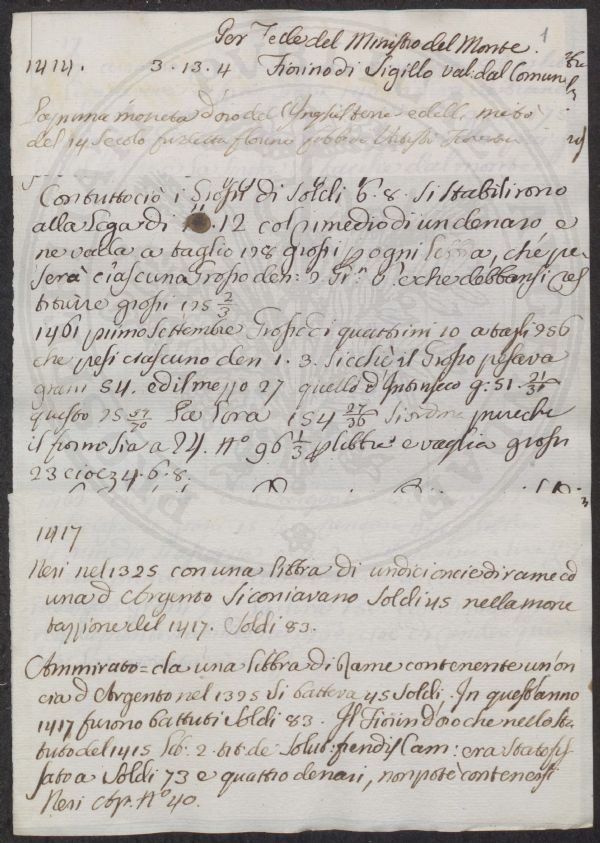 Per Fede del Ministro del Monte. 1
1414. 3.13.4 Fiorino di Sigillo val: dal Comun
La prima moneta d'oro del Inghilterra e dell metà
del 14 Secolo fu detta florino
Contuttociò i Grossi di Soldi 6.8. si stabilirono
alla Lega di 12 colpi medio di un denaro e
ne vada a taglio 178 grossi p ogni libbra, che pe
serà ciascun Grosso den: 2 e che debbansi res
tituire grossi 175 2/3
1461 primo Settembre Grossi di quattrini 20 a tagli 256
che pesi ciascuno den 1.3. Sicchè il Grosso pesava
grani 54. ed il mezzo 27 quello d Intrinseco g: 51.
questo 25 La Lora 154 27/36 Si ordina pure che
il fiorino sia a 24. No 96 1/3 p libbra e vaglia grossi
23 cioè 34.6.8.
1417
Neri nel 1325 con una libbra di undici oncie di rame ed
una d'Argento si coniavano Soldi 45 nella mone
tazzione del 1417. Soldi 83.
Ammirato = da una libbra di Rame contenente un'on
cia d'Argento nel 1325 si batteva 45 Soldi. In quest'anno
1417 furono battuti Soldi 83. Il Fiorin d'oro che nello Sta
tuto del 1415 Lib. 2. tit: de Solut: fiendis Cam: era stato fis
sato a Soldi 73 e quattro denari, non potè contenersi
Neri Ap. No 40.